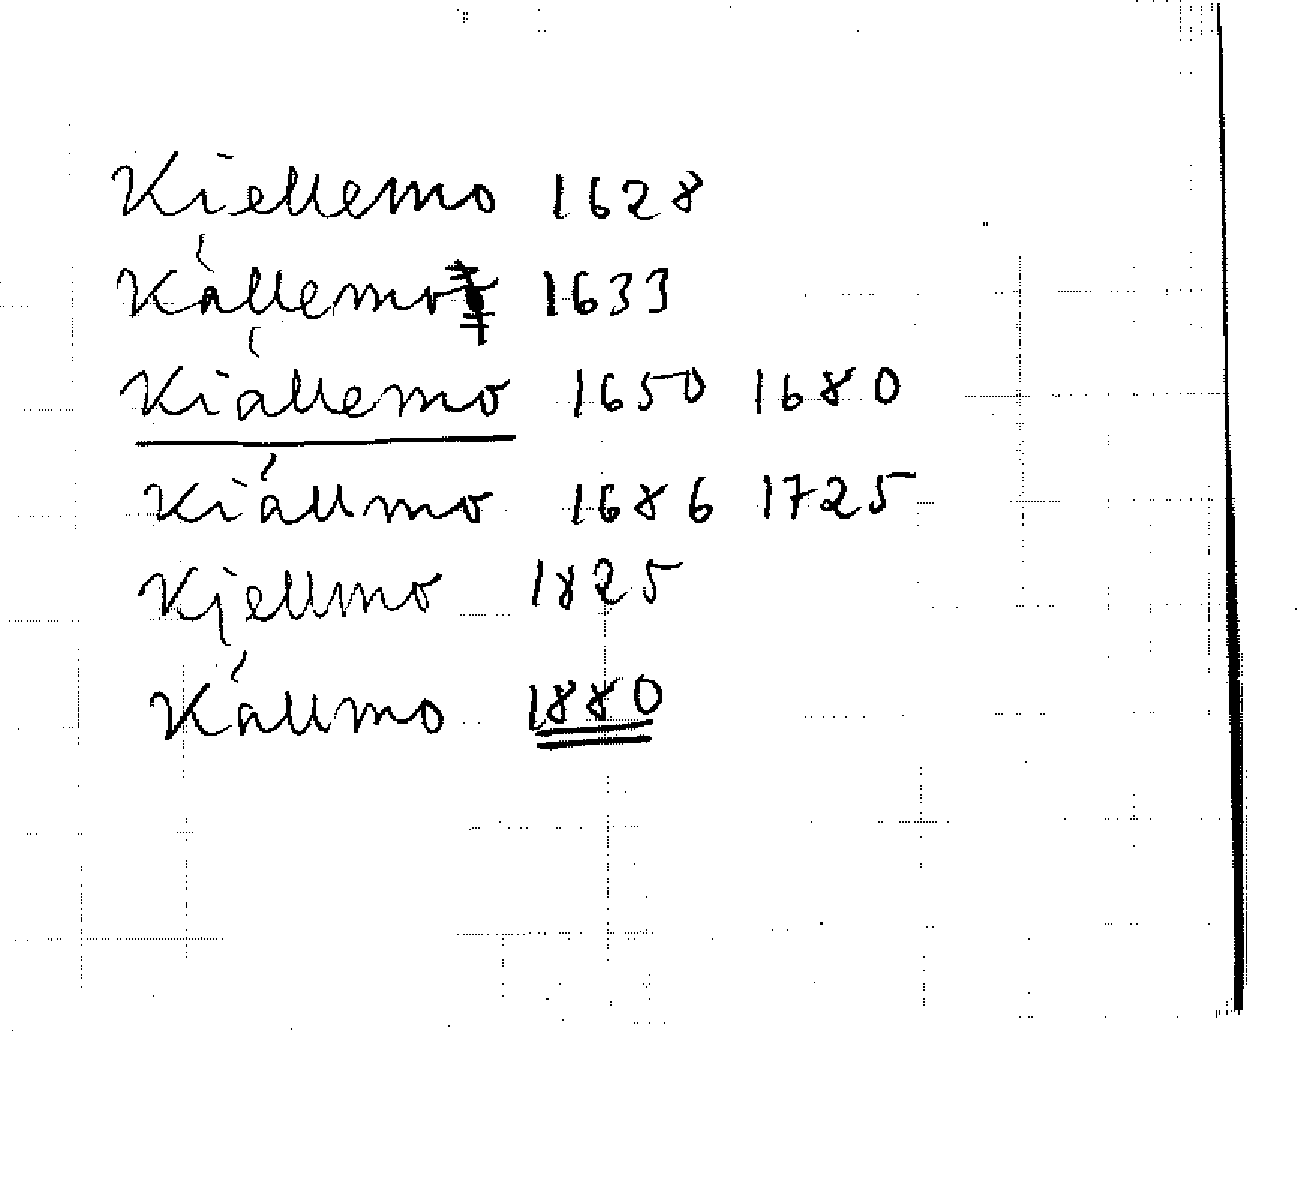 Kiellemo 1628
Källemo 1633
Kiällemo 1650 1680
Kiällmo 1686 1725
Kjellmo 1825
Källmo 1880